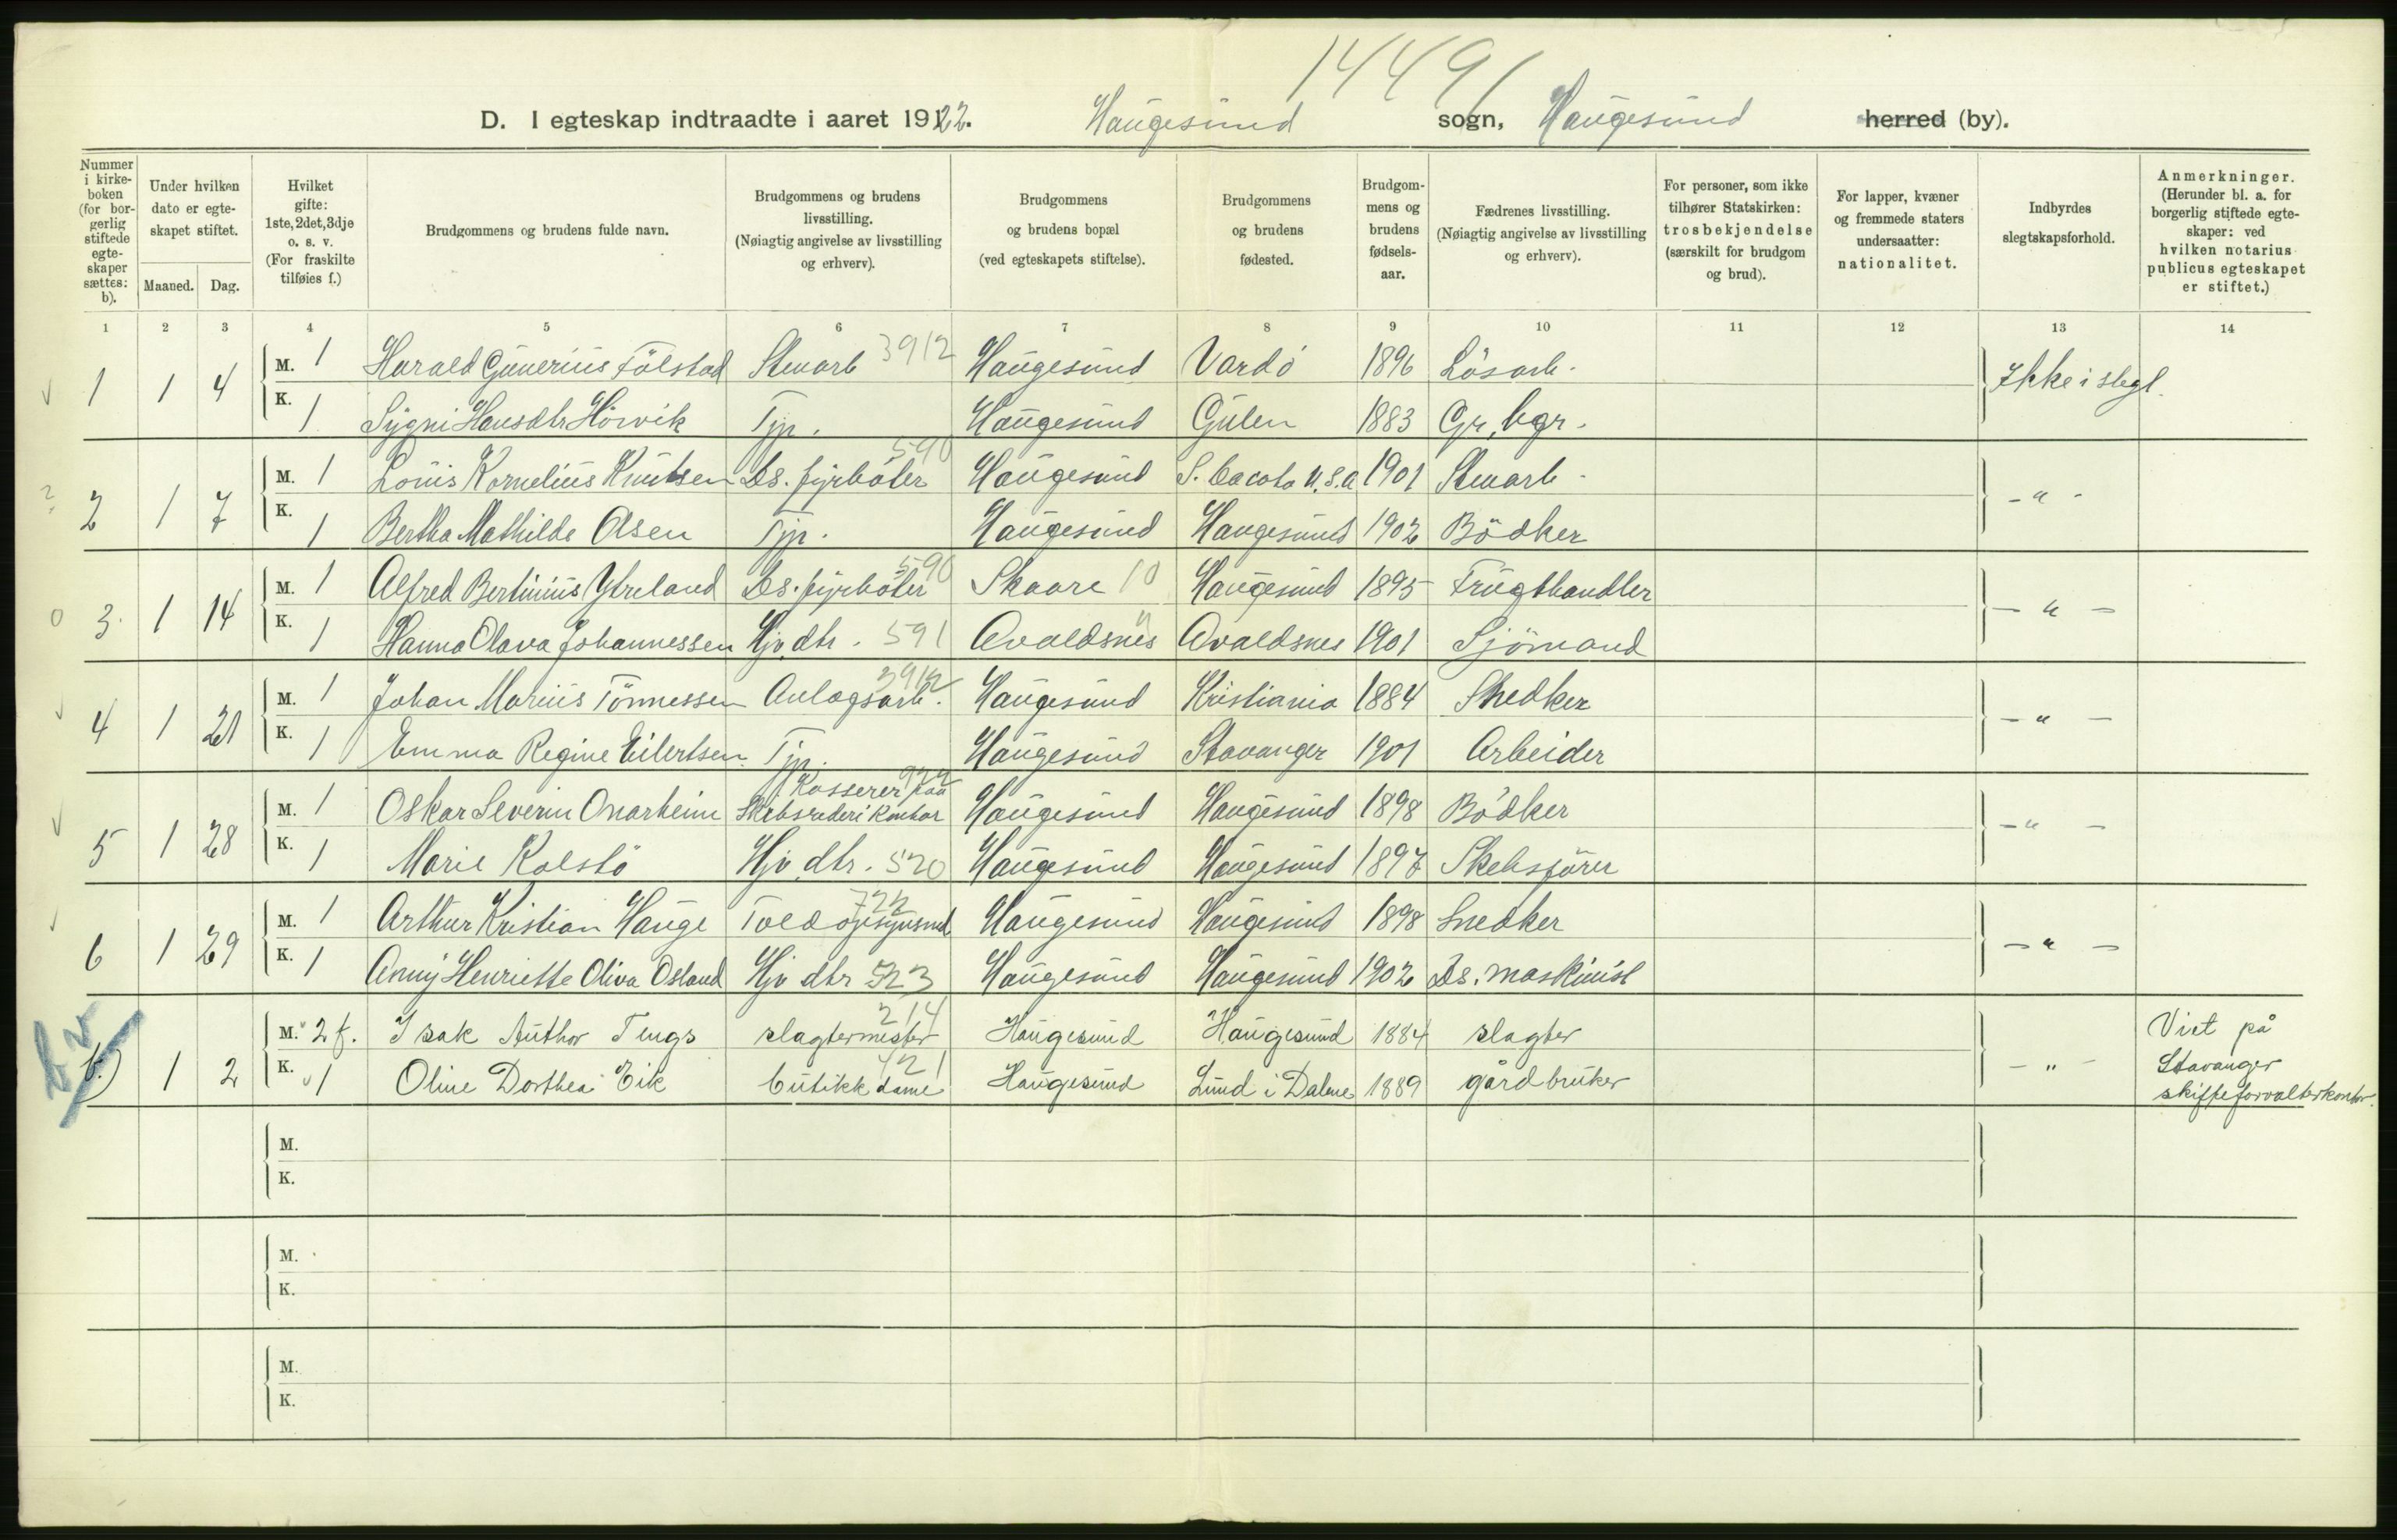 1449
D. I egteskap indtraadte i aaret 1922. Haugesund sogn, Haugesund herred (by).
Nummer i kirkeboken (for borgerlig stiftede egteskaper sættes: b).
Under hvilken dato er egteskapet stiftet.
Maaned. Dag.
Hvilket gifte: 1ste, 2det, 3dje o. s. v. (For fraskilte tilføies f.)
Brudgommens og brudens fulde navn.
Brudgommens og brudens livsstilling. (Nøiagtig angivelse av livsstilling og erhverv).
Brudgommens og brudens bopæl (ved egteskapets stiftelse).
Brudgommens og brudens fødested.
Brudgommens og brudens fødselsaar.
Fædrenes livsstilling. (Nøiagtig angivelse av livsstilling og erhverv).
For personer, som ikke tilhører Statskirken: trosbekjendelse (særskilt for brudgom og brud).
For lapper, kvæner og fremmede staters undersaatter: nationalitet.
Indbyrdes slegtskapsforhold.
Anmerkninger. (Herunder bl. a. for borgerlig stiftede egteskaper: ved hvilken notarius publicus egteskapet er stiftet.)
1 2 3 4 5 6 7 8 9 10 11 12 13 14
1 1 4 M. 1 Harald Gunerius Tölstad Stuarb 3912 Haugesund Vardö 1896 Lösarb. Ikke i slegt.
K. 1 Sygni Hansdtr Hörvik Tjp. Haugesund Gulen 1883 Gr. bgr.
2 1 7 M. 1 Louis Kornelius Knutsen Ds. fyrböter 590 Haugesund S. Dacota U.S.A 1901 Stuarb. - " -
K. 1 Bertha Mathilde Olsen Tjp. Haugesund Haugesund 1902 Bödker
3. 1 14 M. 1 Alfred Bertinius Ytreland Ds. fyrböter 590 Skaare 10 Haugesund 1895 Frugthandler - " -
K. 1 Hanna Olava Johannessen Hjv. dtr. 591 Avaldsnes Avaldsnes 1901 Sjömand
4 1 21 M. 1 Johan Marius Tönnessen Anlagsarb. 3912 Haugesund Kristiania 1884 Snedker - " -
K. 1 Emma Regine Eilertsen Tjp. Haugesund Stavanger 1901 Arbeider
5 1 28 M. 1 Oskar Severin Onarheim Kasserer paa Skibsrederikontor 922 Haugesund Haugesund 1898 Bödker - " -
K. 1 Marie Kolstö Hjv. dtr. 520 Haugesund Haugesund 1897 Skibsförer
6 1 29 M. 1 Arthur Kristian Hauge Toldopsynsmd 722 Haugesund Haugesund 1898 Snedker - " -
K. 1 Anny Henriette Oliva Osland Hjv dtr 523 Haugesund Haugesund 1902 Ds. maskinist
b) 1 2 M. 2 f. Isak Author Tengs slagtermester 214 Haugesund Haugesund 1884 slagter - " - Viet på
K. 1 Oline Dorthea Eik butikkdame 421 Haugesund Lund i Dalene 1889 gårdbruker Stavanger
skifteforvalterkontor.
M.
K.
M.
K.
M.
K.